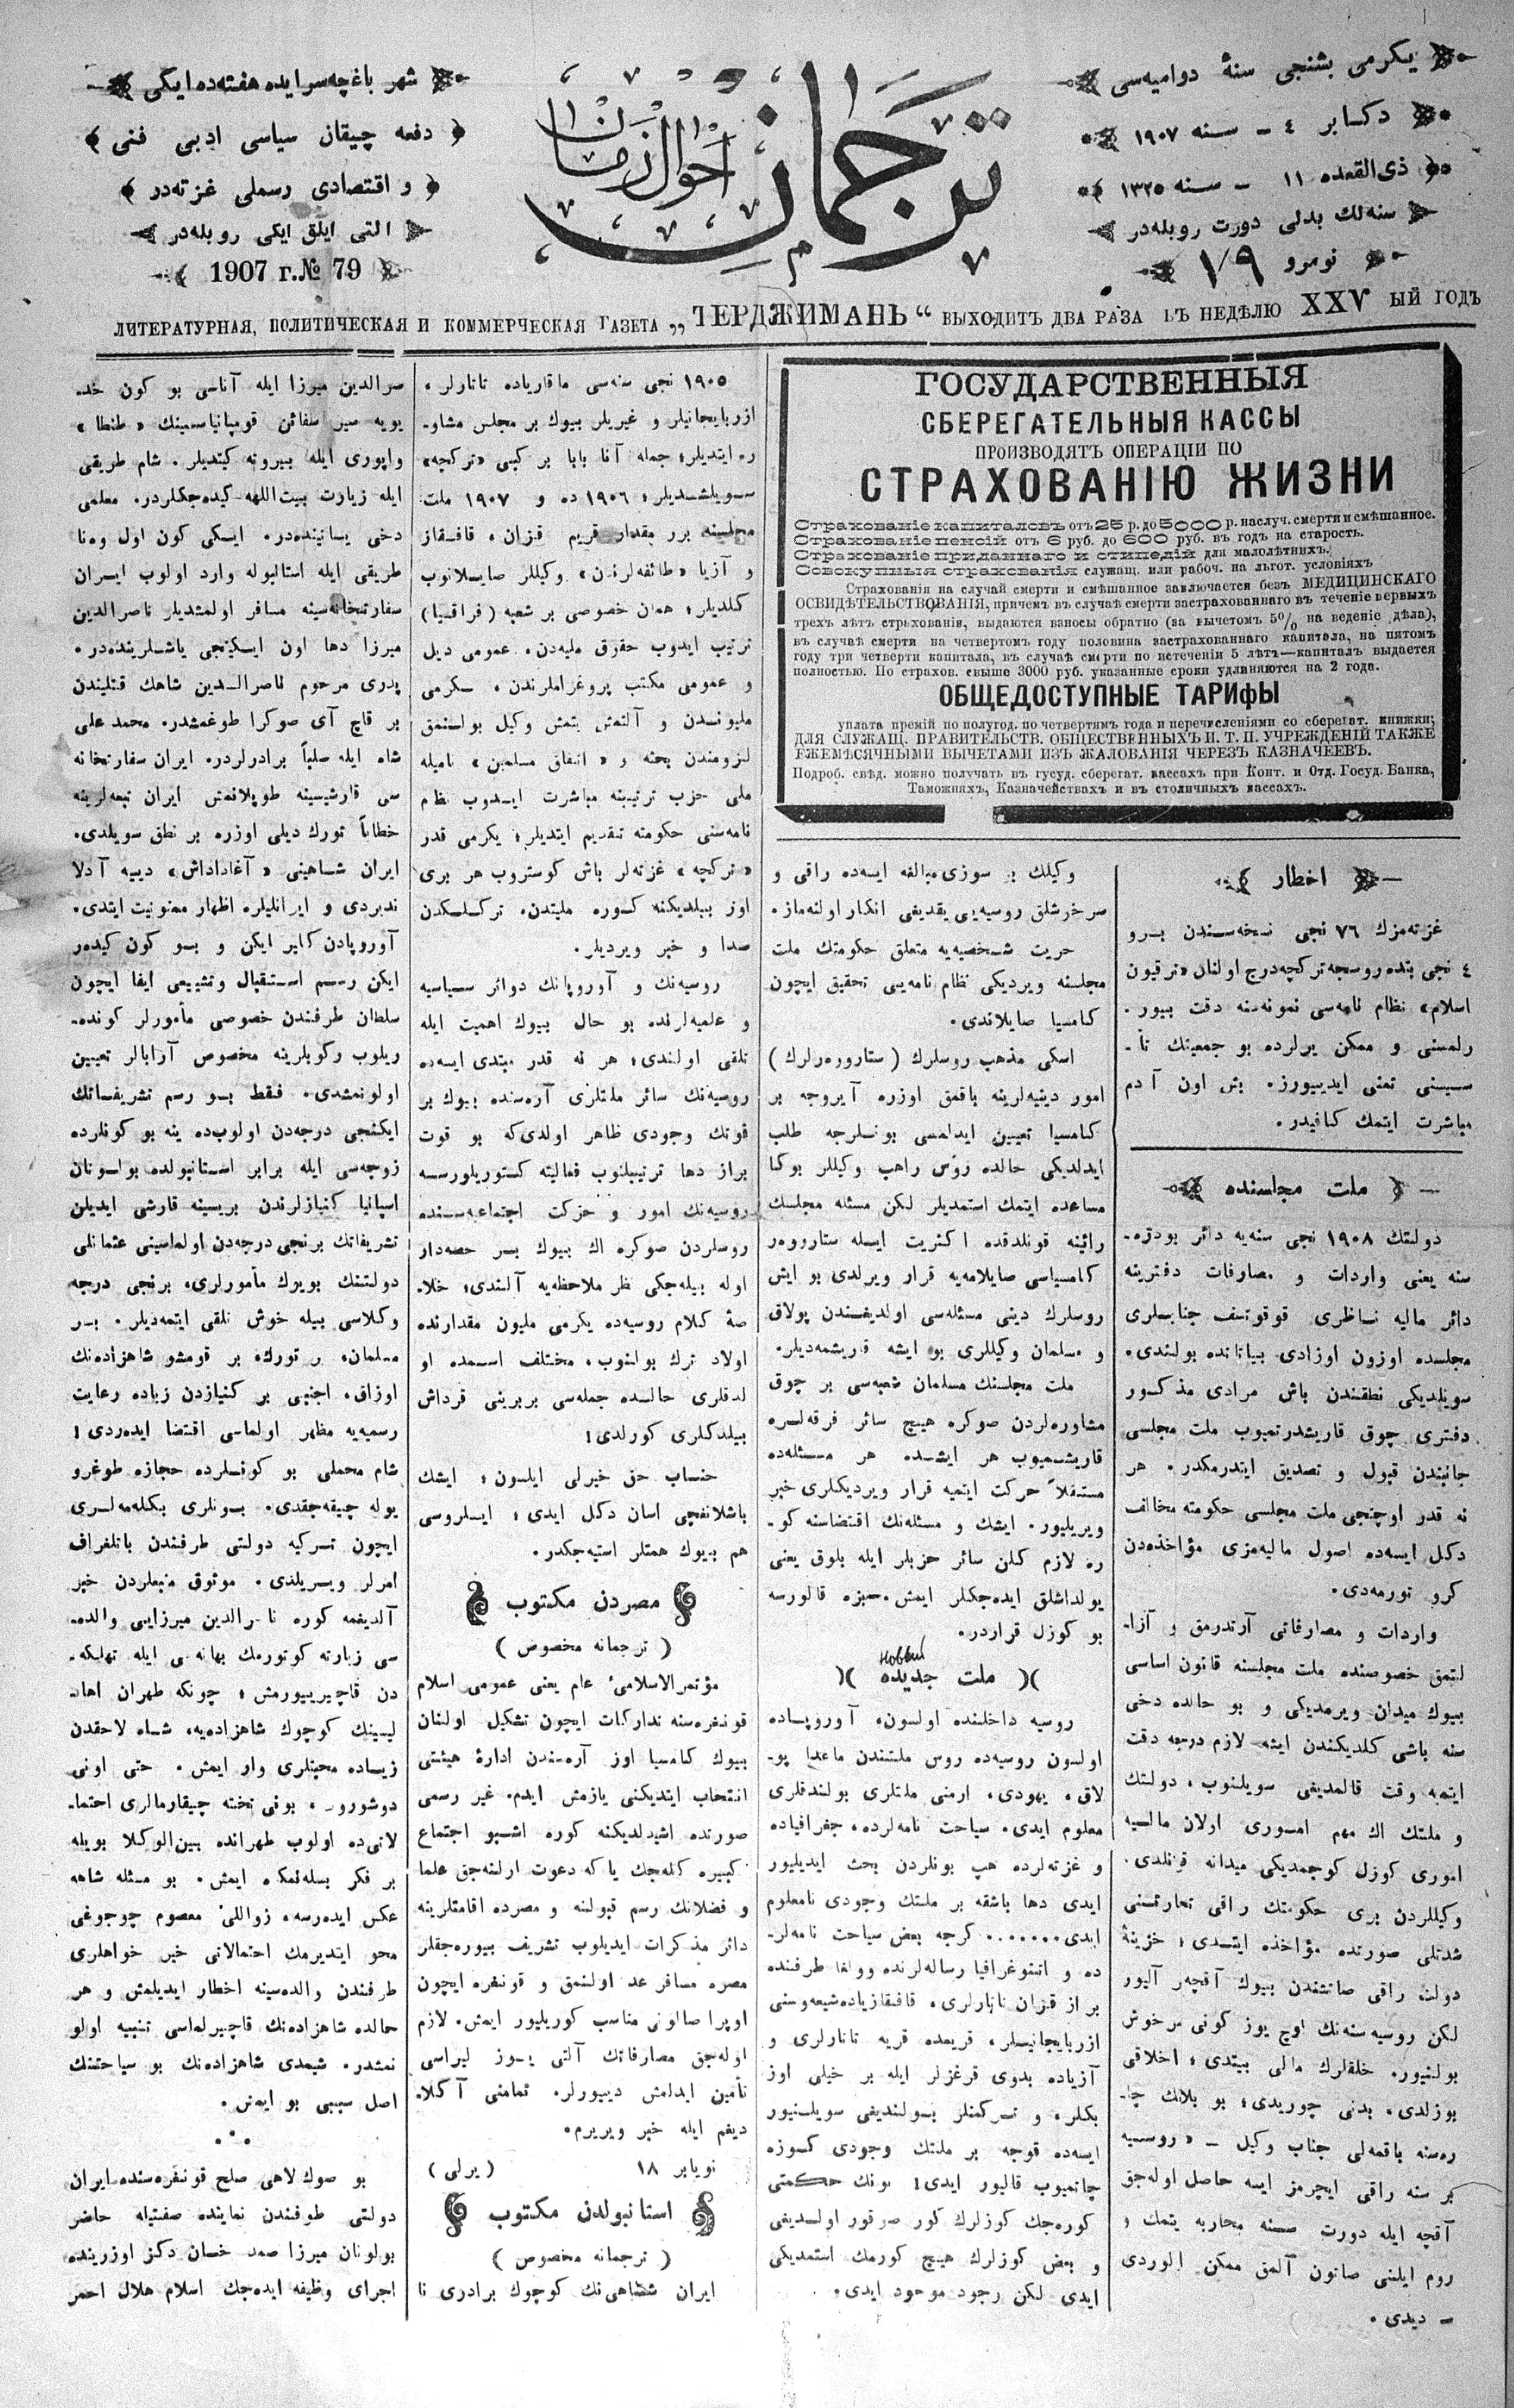 يكرمى بشنجى سنهٔ دواميه‌سى
دكابر ٤ - سنه ١٩٠٧
ذى القعده ١١ - سنه ١٣٢٥
سنه‌لك بدلى دورت روبله‌در
نومرو ٧٩
ترجمان
احوال زمان
شهر باغچه‌سرايده هفته‌ده ايكى
دفعه چيقان سياسى ادبى فنى
و اقتصادى رسملى غزته‌در
التى ايلق ايكى روبله‌در
1907 г. № 79
ЛИТЕРАТУРНАЯ, ПОЛИТИЧЕСКАЯ И КОММЕРЧЕСКАЯ ГАЗЕТА „ТЕРДЖИМАНЬ“ ВЫХОДИТЪ ДВА РАЗА ВЪ НЕДѢЛЮ XXV ЫЙ ГОДЪ
ГОСУДАРСТВЕННЫЯ
СБЕРЕГАТЕЛЬНЫЯ КАССЫ
ПРОИЗВОДЯТЪ ОПЕРАЦІИ ПО
СТРАХОВАНІЮ ЖИЗНИ
Страхованіе капиталовъ отъ 25 р. до 5000 р. на случ. смерти и смѣшанное.
Страхованіе пенсій отъ 6 руб. до 600 руб. въ годъ на старость.
Страхованіе приданнаго и стипедій для малолѣтнихъ.
Совокупныя страхованія служащ. или рабоч. на льгот. условіяхъ
Страхованія на случай смерти и смѣшанное заключается безъ МЕДИЦИНСКАГО
ОСВИДѢТЕЛЬСТВОВАНІЯ, причемъ въ случаѣ смерти застрахованнаго въ теченіе первыхъ
трехъ лѣтъ страхованія, выдаются взносы обратно (за вычетомъ 5% на веденіе дѣла),
въ случаѣ смерти на четвертомъ году половина застрахованнаго капитала, на пятомъ
году три четверти капитала, въ случаѣ смерти по истеченіи 5 лѣтъ—капиталъ выдается
полностью. По страхов. свыше 3000 руб. указанные сроки удлиняются на 2 года.
ОБЩЕДОСТУПНЫЕ ТАРИФЫ
уплата премій по полугод. по четвертямъ года и перечисленіями со сберегат. книжки;
ДЛЯ СЛУЖАЩ. ПРАВИТЕЛЬСТВ. ОБЩЕСТВЕННЫХЪ И. Т. П. УЧРЕЖДЕНІЙ ТАКЖЕ
ЕЖЕМѢСЯЧНЫМИ ВЫЧЕТАМИ ИЗЪ ЖАЛОВАНІЯ ЧЕРЕЗЪ КАЗНАЧЕЕВЪ.
Подроб. свѣд. можно получать въ гусуд. сберегат. кассахъ при Конт. и Отд. Госуд. Банка,
Таможняхъ, Казначействахъ и въ столичныхъ кассахъ.
اخطار
غزته‌مزك ٧٦ نجى نسخه‌سندن برو
٤ نجى بتده روسجه تركچه درج اولنان «ترقيون
اسلام» نظام نامه‌سى نمونه‌سنه دقت بيور.
رلمسنى و ممكن يرلرده بو جمعيتك تأ-
سيسنى تمنى ايدييورز. بش اون آدم
مباشرت ايتمك كافيدر.
ملت مجلسنده
دولتك ١٩٠٨ نجى سنه‌يه دائر بودژه-
سنه يعنى واردات و مصارفات دفترينه
دائر ماليه ناظرى قوقوتسف جنابلرى
مجلسده اوزون اوزادى بياناتده بولندى.
سويلديكى نطقندن باش مرادى مذكور
دفترى چوق قاريشدرتميوب ملت مجلسى
جانبندن قبول و تصديق ايتدرمكدر. هر
نه قدر اوچنجى ملت مجلسى حكومته مخالف
دكل ايسه‌ده اصول ماليه‌مزى مؤاخذه‌دن
كرو تورمه‌دى.
واردات و مصارفاتى آرتدرمق و آزا-
لتمق خصوصنده ملت مجلسنه قانون اساسى
بيوك ميدان ويرمديكى و بو حالده دخى
سنه باشى كلديكندن ايشه لازم درجه دقت
ايتمه وقت قالمديغى سويلنوب، دولتك
و ملتك اك مهم امورى اولان ماليه
امورى كوزل كوجمديكى ميدانه قونلدى.
وكيللردن برى حكومتك راقى تجارتنى
شدتلى صورتده مؤاخذه ايتدى؛ خزينهٔ
دولت راقى صاتشندن بيوك آقچه‌ر آليور
لكن روسيه سنه‌نك اوچ يوز كونى سرخوش
بولنيور. خلقلرك مالى بيتدى؛ اخلاقى
بوزلدى، بدنى چوريدى؛ بو بلانك چا-
ره‌سنه باقمه‌لى جناب وكيل - «روسيه
بر سنه راقى ايچرمز ايسه حاصل اوله‌جق
آقچه ايله دورت سنه محاربه يتمك و
روم ايلنى صاتون آلمق ممكن الوردى
- ديدى.
وكيلك بو سوزى مبالغه ايسه‌ده راقى و
سرخوشلق روسيه‌يى يقديغى انكار اولنه‌ماز.
حريت شخصيه‌يه متعلق حكومتك ملت
مجلسنه ويرديكى نظام نامه‌يى تحقيق ايچون
كاميسيا صايلاندى.
اسكى مذهب روسلرك (ستارووه‌رلرك)
امور دينيه‌لرينه باقمق اوزره آيروجه بر
كاميسيا تعيين ايدلمسى بونلرجه طلب
ايدلديكى حالده روس راهب وكيللر بوكا
مساعده ايتمك استمديلر لكن مسئله مجلسك
رائينه قونلدقده اكثريت ايله ستارووه‌ر
كاميسياسى صايلامه‌يه قرار ويرلدى بو ايش
روسلرك دينى مسئله‌سى اولديغندن پولاق
و مسلمان وكيللرى بو ايشه قاريشمه‌ديلر.
ملت مجلسنك مسلمان شعبه‌سى بر چوق
مشاوره‌لردن صوكره هيچ سائر فرقه‌لره
قاريشميوب هر ايشده هر مسئله‌ده
مستقلاً حركت ايتميه قرار ويرديكلرى خبر
ويريليور. ايشك و مسئله‌نك اقتضاسنه كو-
ره لازم كلن سائر حزبلر ايله بلوق يعنى
يولداشلق ايده‌جكلر ايمش. بزه قالورسه
بو كوزل قراردر.
новый
ملت جديده
روسيه داخلنده اولسون، آوروپاده
اولسون روسيه‌ده روس ملتندن ماعدا پو-
لاق، يهودى، ارمنى ملتلرى بولندقلرى
معلوم ايدى. سياحت نامه‌لرده، جغرافياده
و غزته‌لرده هپ بونلردن بحث ايديليور
ايدى دها باشقه بر ملتك وجودى نامعلوم
ايدى....... كرچه بعض سياحت نامه‌لر-
ده و اتنوغرافيا رساله‌لرنده وولغا طرفنده
براز قزان تاتارلرى، قافقازياده شيعه و سنى
ازربايجانيلر، قريمده قريه تاتارلرى و
آزياده بدوى قرغزلر ايله بر خيلى اوز
بكلر، و تركمنلر بولنديغى سويلنيور
ايسه‌ده قوجه بر ملتك وجودى كوزه
چاتميوب قاليور ايدى؛ بونك حكمتى
كوره‌جك كوزلرك كور صوقور اولديغى
و بعض كوزلرك هيچ كورمك استمديكى
ايدى لكن وجود موجود ايدى.
١٩٠٥ نجى سنه‌سى ماقارياده تاتارلر،
ازربايجانيلر و غيريلر بيوك بر مجلس مشاو-
ره ايتديلر؛ جمله آنا بابا بر كبى «تركچه»
سويلشديلر؛ ١٩٠٦ ده و ١٩٠٧ ملت
مجلسنه برر مقدار قريم قزان، قافقاز
و آزيا «طائفه‌لرندن» وكيللر صايلانوب
كلديلر؛ همان خصوصى بر شعبه (فراقسيا)
ترتيب ايدوب حقوق مليه‌دن، عمومى ديل
و عمومى مكتب پروغراملرندن، يكرمى
مليوندن و آلتمش يتمش وكيل بولنمق
لزومندن بحثه و «اتفاق مسلمين» ناميله
ملى حزب ترتيبنه مباشرت ايدوب نظام
نامه‌سنى حكومته تقديم ايتديلر؛ يكرمى قدر
«تركچه» غزته‌لر باش كوستروب هر برى
اوز بيلديكنه كوره مليتدن، تركلكدن
صدا و خبر ويرديلر.
روسيه‌نك و آوروپانك دوائر سياسيه
و علميه‌لرنده بو حال بيوك اهميت ايله
تلقى اولندى؛ هر نه قدر مبتدى ايسه‌ده
روسيه‌نك سائر ملتلرى آره‌سنده بيوك بر
قوتك وجودى ظاهر اولدى‌كه بو قوت
براز دها ترتيبلنوب فعاليته كتوريلورسه
روسيه‌نك امور و حركت اجتماعيه‌سنده
روسلردن صوكره اك بيوك بر حصه‌دار
اوله بيله‌جكى نظر ملاحظه‌يه آلندى؛ خلا-
صهٔ كلام روسيه‌ده يكرمى مليون مقدارنده
اولاد ترك بولنوب، مختلف اسمده او
لدقلرى حالده جمله‌سى بربرينى قرداش
بيلدكلرى كورلدى؛
جناب حق خيرلى ايلسون؛ ايشك
باشلانغچى اسان دكل ايدى؛ ايلروسى
هم بيوك همتلر استيه‌جكدر.
مصردن مكتوب
(ترجمانه مخصوص)
مؤتمر الاسلامئ عام يعنى عمومى اسلام
قونفره‌سنه تداركات ايچون تشكيل اولنان
بيوك كاميسيا اوز آره‌سندن ادارهٔ هيئتى
انتخاب ايتديكنى يازمش ايدم. غير رسمى
صورتده اشيدلديكنه كوره اشبو اجتماع
كبيره كله‌جك ياكه دعوت اولنه‌جق علما
و فضلانك رسم قبولنه و مصرده اقامتلرينه
دائر مذكرات ايديلوب تشريف بيوره‌جقلر
مصره مسافر عد اولنمق و قونفره ايچون
اوپرا صالونى مناسب كوريليور ايمش. لازم
اوله‌جق مصارفاتك آلتى يوز ليراسى
تأمين ايدلمش دييورلر. تمامنى آكلا-
ديغم ايله خبر ويريرم.
نويابر ١٨ (يرلى)
استانبولدن مكتوب
(ترجمانه مخصوص)
ايران شاهى‌نك كوچوك برادرى نا
صرالدين ميرزا ايله آناسى بو كون خد-
يويه سير سفائن قومپانياسينك «طنطا»
واپورى ايله بيروته كيتديلر. شام طريقى
ايله زيارت بيت اللهه كيده‌جكلردر. معلمى
دخى يانينده‌در. ايكى كون اول وه‌نا
طريقى ايله استانبوله وارد اولوب ايران
سفارتخانه‌سينه مسافر اولمشديلر ناصرالدين
ميرزا دها اون ايكنجى ياشلرينده‌در.
پدرى مرحوم ناصرالدين شاهك قتليندن
بر قاچ آى صوكرا طوغمشدر. محمد على
شاه ايله صلباً برادرلردر. ايران سفارتخانه
سى قارشيسينه طوپلانمش ايران تبعه‌لرينه
خطاباً تورك ديلى اوزره بر نطق سويلدى.
ايران شاهينى «آغاداداش» دييه آدلا
نديردى و ايرانليلره اظهار ممنونيت ايتدى.
آوروپادن كلير ايكن و بو كون كيده‌ر
ايكن رسم استقبال وتشييعى ايفا ايچون
سلطان طرفندن خصوصى مأمورلر كونده-
ريلوب ركوبلرينه مخصوص آرابالر تعيين
اولونمشدى. فقط بو رسم تشريفاتك
ايكنجى درجه‌دن اولوب‌ده ينه بو كونلرده
زوجه‌سى ايله برابر استانبولده بولونان
اسپانيا كنيازلرندن بريسينه قارشى ايديلن
تشريفاتك برنجى درجه‌دن اولماسينى عثمانلى
دولتنك بويوك مأمورلرى، برنجى درجه
وكلاسى بيله خوش تلقى ايتمه‌ديلر. بر
مسلمان، بر تورك، بر قومشو شاهزاده‌نك
اوزاق، اجنبى بر كنيازدن زياده رعايت
رسميه‌يه مظهر اولماسى اقتضا ايده‌ردى؛
شام محملى بو كونلرده حجازه طوغرو
يوله چيقه‌جقدى. بونلرى بكله‌مه‌لرى
ايچون تركيه دولتى طرفندن باتلغراف
امرلر ويريلدى. موثوق منبعلردن خبر
آلديغمه كوره ناصرالدين ميرزايى والده-
سى زيارته كوتورمك بهانه‌سى ايله تهلكه-
دن قاچيرييورمش؛ چونكه طهران اها-
ليسينك كوچوك شاهزاده‌يه، شاه لاحقدن
زياده محبتلرى وار ايمش. حتى اونى
دوشوروب، بونى تخته چيقارمالرى احتما-
لاتى‌ده اولوب طهرانده بين الوكلا بويله
بر فكر بسله‌نمكده ايمش. بو مسئله شاهه
عكس ايده‌رسه، زواللى معصوم چوجوغى
محو ايتديرمك احتمالاتى خبر خواهلرى
طرفندن والده‌سينه اخطار ايديلمش و هر
حالده شاهزاده‌نك قاچيرلماسى تنبيه اولو
نمشدر. شيمدى شاهزاده‌نك بو سياحتنك
اصل سببى بو ايمش.
بو صوك لاهى صلح قونفره‌سنده ايران
دولتى طرفندن نماينده صفتيله حاضر
بولونان ميرزا صمد خان دكز اوزرينده
اجراى وظيفه ايده‌جك اسلام هلال احمر